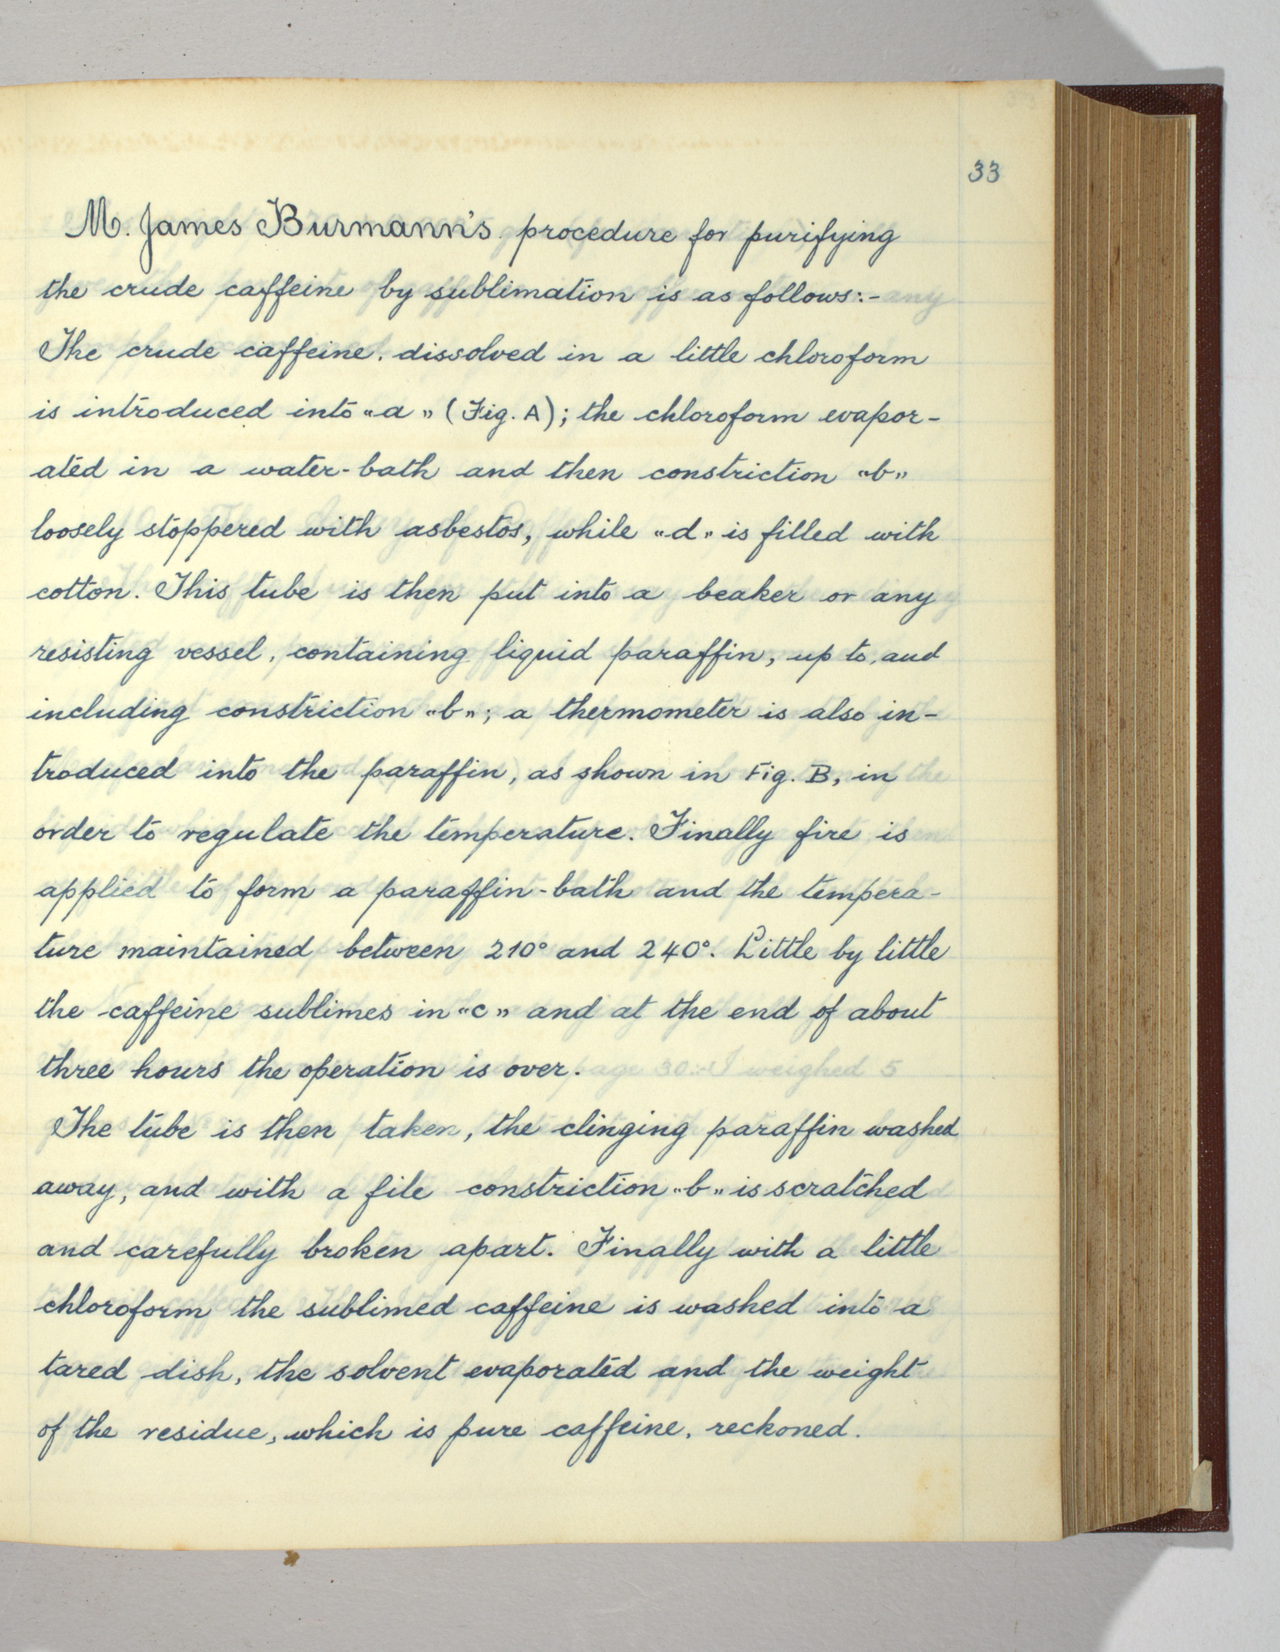 33
M. James Burmann's procedure for purifying
the crude caffeine by sublimation is as follows:-
The crude caffeine, dissolved in a little chloroform
is introduced into "a" (Fig. A); the chloroform evapor-
ated in a water-bath and then constriction "b"
loosely stoppered with asbestos, while "d" is filled with
cotton. This tube is then put into a beaker or any
resisting vessel, containing liquid paraffin, up to, and
including constriction "b"; a thermometer is also in-
troduced into the paraffin, as shown in Fig. B, in
order to regulate the temperature. Finally fire is
applied to form a paraffin-bath and the tempera-
ture maintained between 210° and 240°. Little by little
the caffeine sublimes in "c" and at the end of about
three hours the operation is over.
The tube is then taken, the clinging paraffin washed
away, and with a file constriction "b" is scratched
and carefully broken apart. Finally with a little
chloroform the sublimed caffeine is washed into a
tared dish, the solvent evaporated and the weight
of the residue, which is pure caffeine, reckoned.